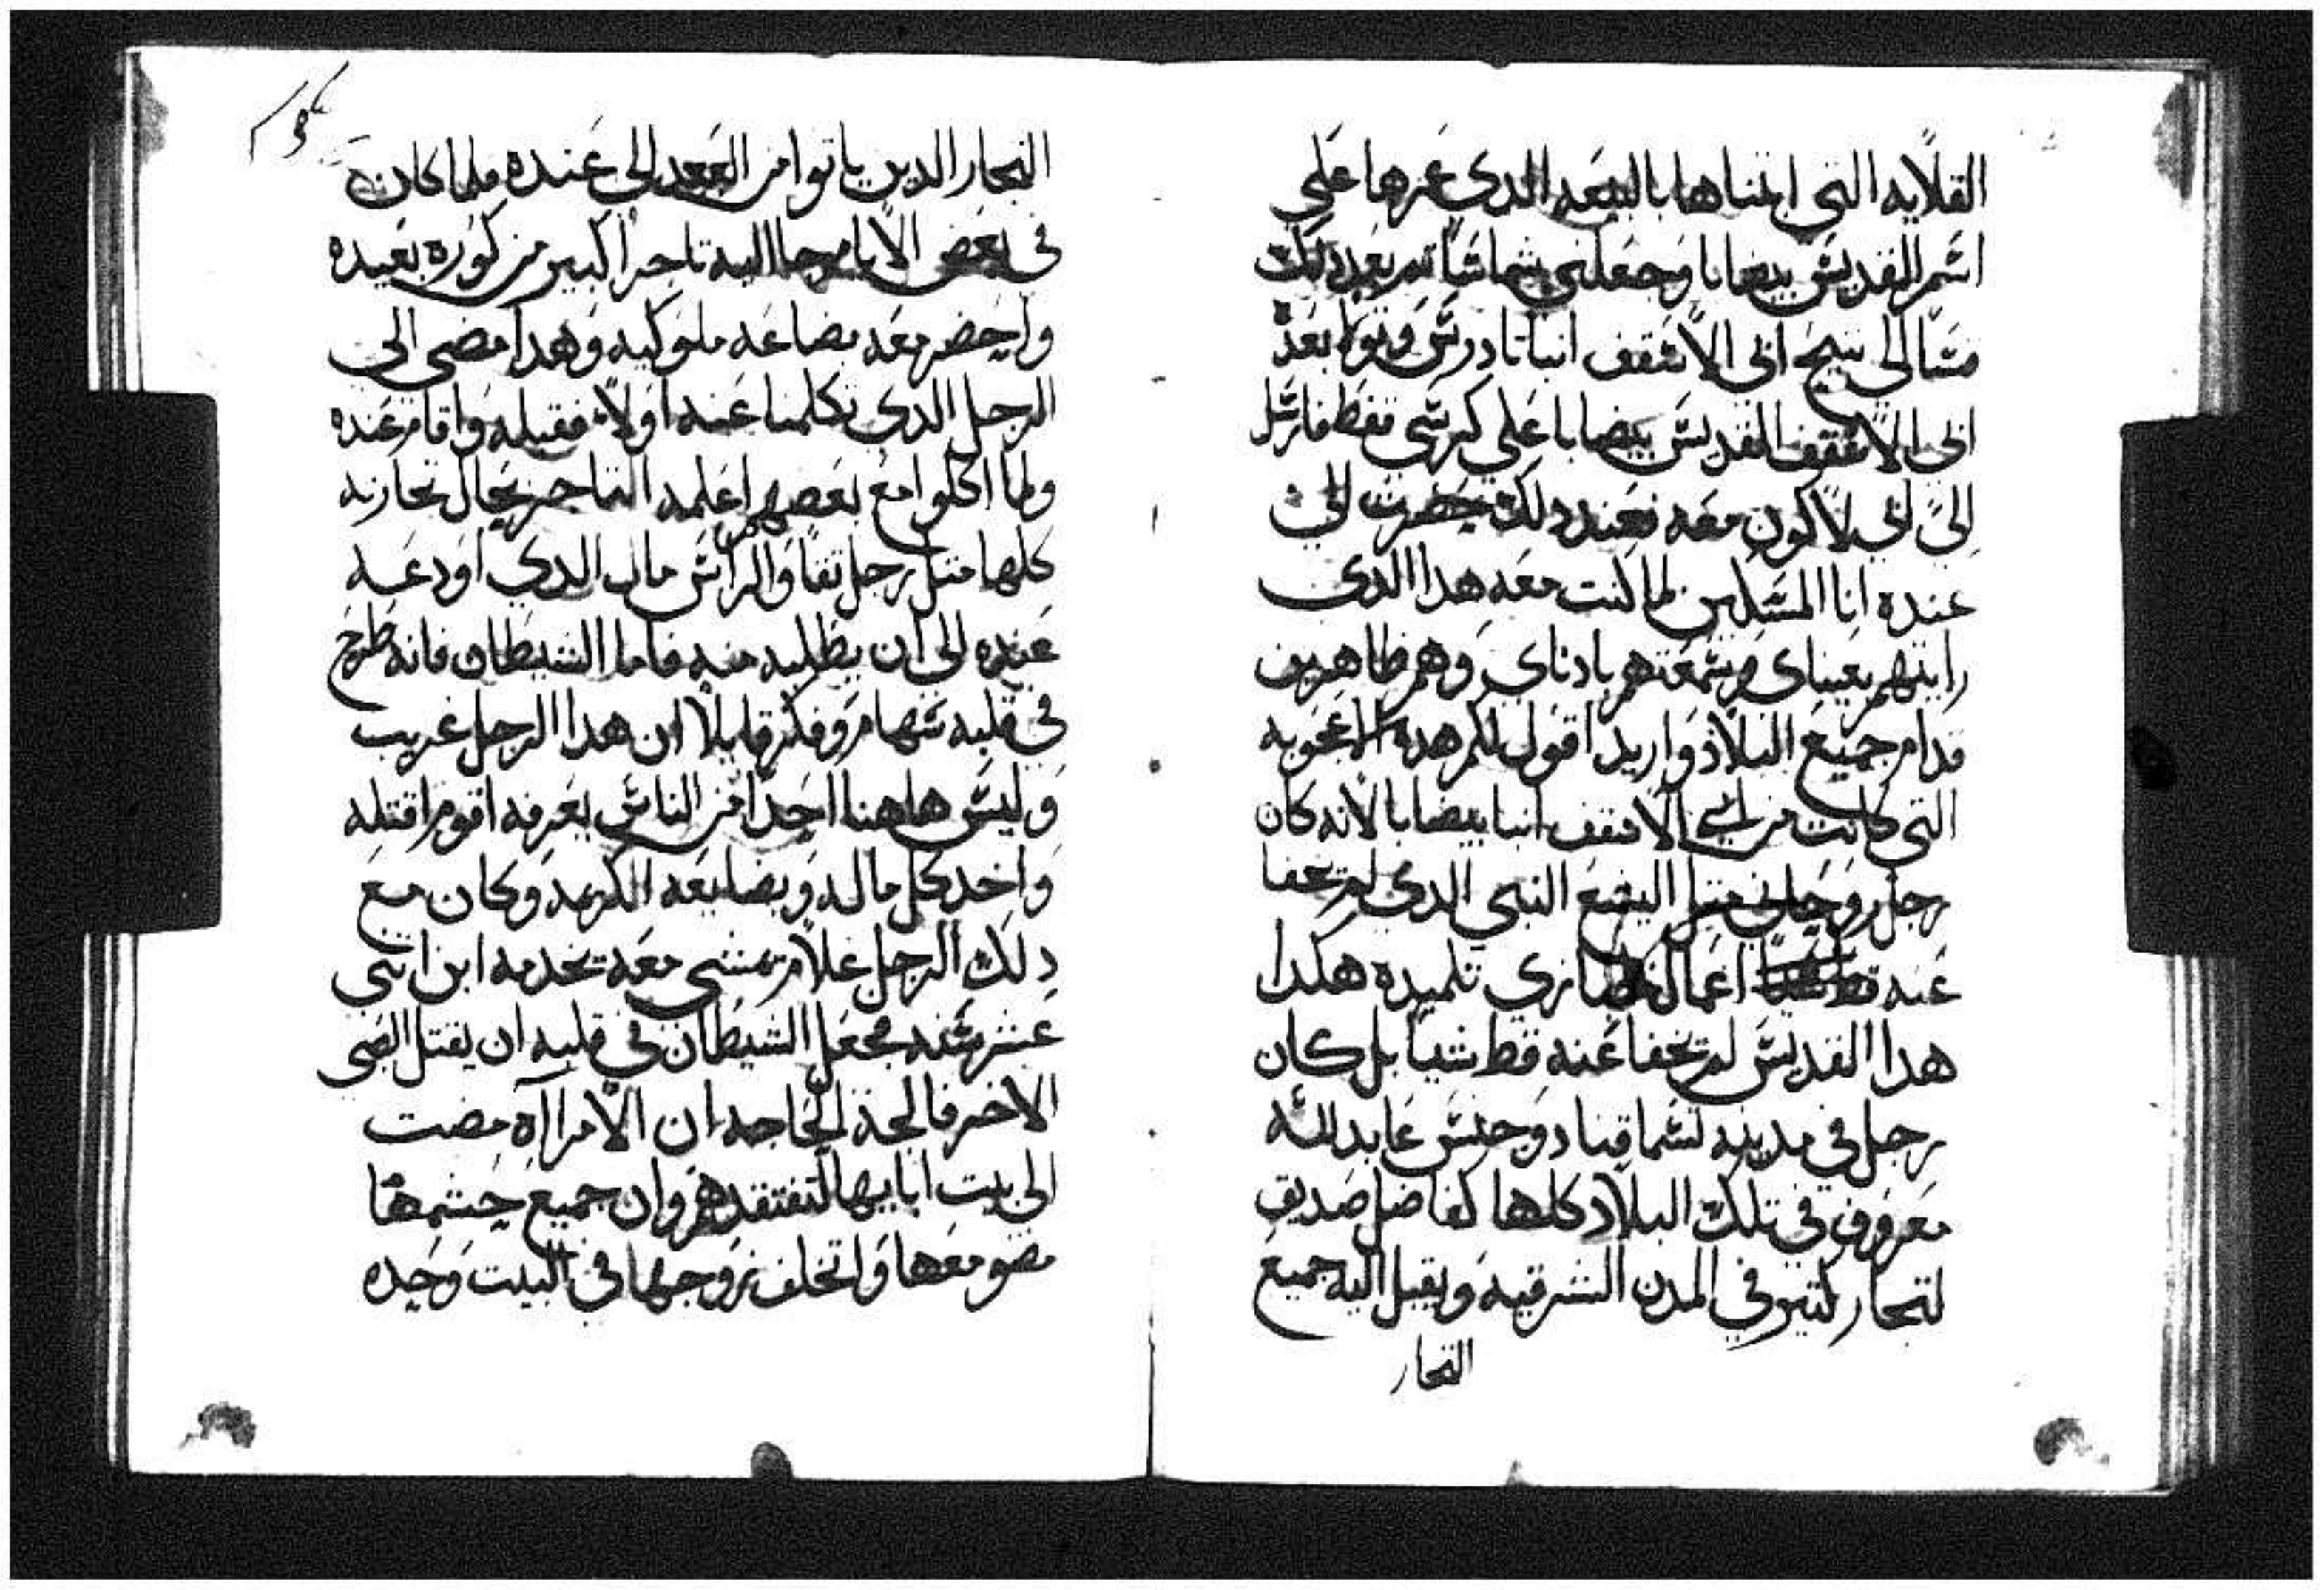 القلايه التى ابتناها بالبيعه الدى عمرها على
اسم القديس بيضابا وجعلنى شماسًا تم بعد دلك
مشا الى تنيح ابى الاسقف انبا تادرس وتولا بعد
ابى الاسقف القديس بيضابا على كرسى قفط فارسل
الىَّ ابى لاكون معه فعند دلك حضرت الى
عنده انا المسكين لما كنت معه هدا الدى
رايتهم بعيناى وسمعتهم بادناى وهم ظاهرين
قدام جميع البلاد واريد اقول لكم هده الاعجوبه
التى كانت من ابى الاسقف انبا بيضابا لانه كان
رجل روحانى متل اليشع النبى الدى لم تخفا
عنه قط اعمال تلميده هكدا
هدا القديس لم تخفا عنه قط شيًا بل كان
رجل فى مدينه تسما قنا دوجنس عابد الله
معروف فى تلك البلاد كلها كفاضل صديق
لتجار كتير فى المدن الشرقيه ويقبل اليه جميع
التجار
التجار الدين ياتوا من البعد الى عنده فلما كان
فى بعض الايام جا اليه تاجرًا كبير من كوره بعيده
واحضر معه بضاعه ملوكيه وهدا مضى الى
الرجل الدى تكلمنا عنه اولاً فقبله واقام عنده
ولما اكلوا مع بعضهم اعلمه التاجر بحال تجارته
كلها متل رجل تقا والراس مال الدى اودعه
عنده الى ان يطلبه منه فاما الشيطان فانه طرح
فى قلبه سهام وفكر قايلاً ان هدا الرجل غريب
وليس هاهنا احدًا من الناس يعرفه اقوم اقتله
واخد كل ماله وبضايعه الكريمه وكان مع
دلك الرجل غلام تمشى معه تخدمه ابن اتنى
عشر سنه فجعل الشيطان فى قلبه ان يقتل الصبى
الاخر فالجة الحاجه ان الامراه مضت
الى بيت ابايها لتفتقدهم وان جميع حشمها
مضو معها واتخلف زوجها فى البيت وحده